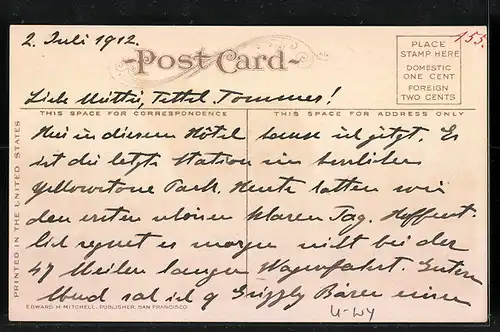 2. Juli 1912.
155.
Post Card
PLACE
STAMP HERE
DOMESTIC
ONE CENT
FOREIGN
TWO CENTS
Liebe Mutti, Tommes!
THIS SPACE FOR CORRESPONDENCE
THIS SPACE FOR ADDRESS ONLY
in diesem Hôtel hause ich jetzt. Es
ist die letzte Station im herrlichen
Yellowstone Park. Heute hatten wir
den ersten klaren Tag. Hoffent-
lich regnet es morgen nicht bei der
47 Meilen langen Wagenfahrt. Gestern
Abend sah ich 9 Grizzly Bären einen
PRINTED IN THE UNITED STATES
EDWARD H. MITCHELL, PUBLISHER, SAN FRANCISCO
U-WY